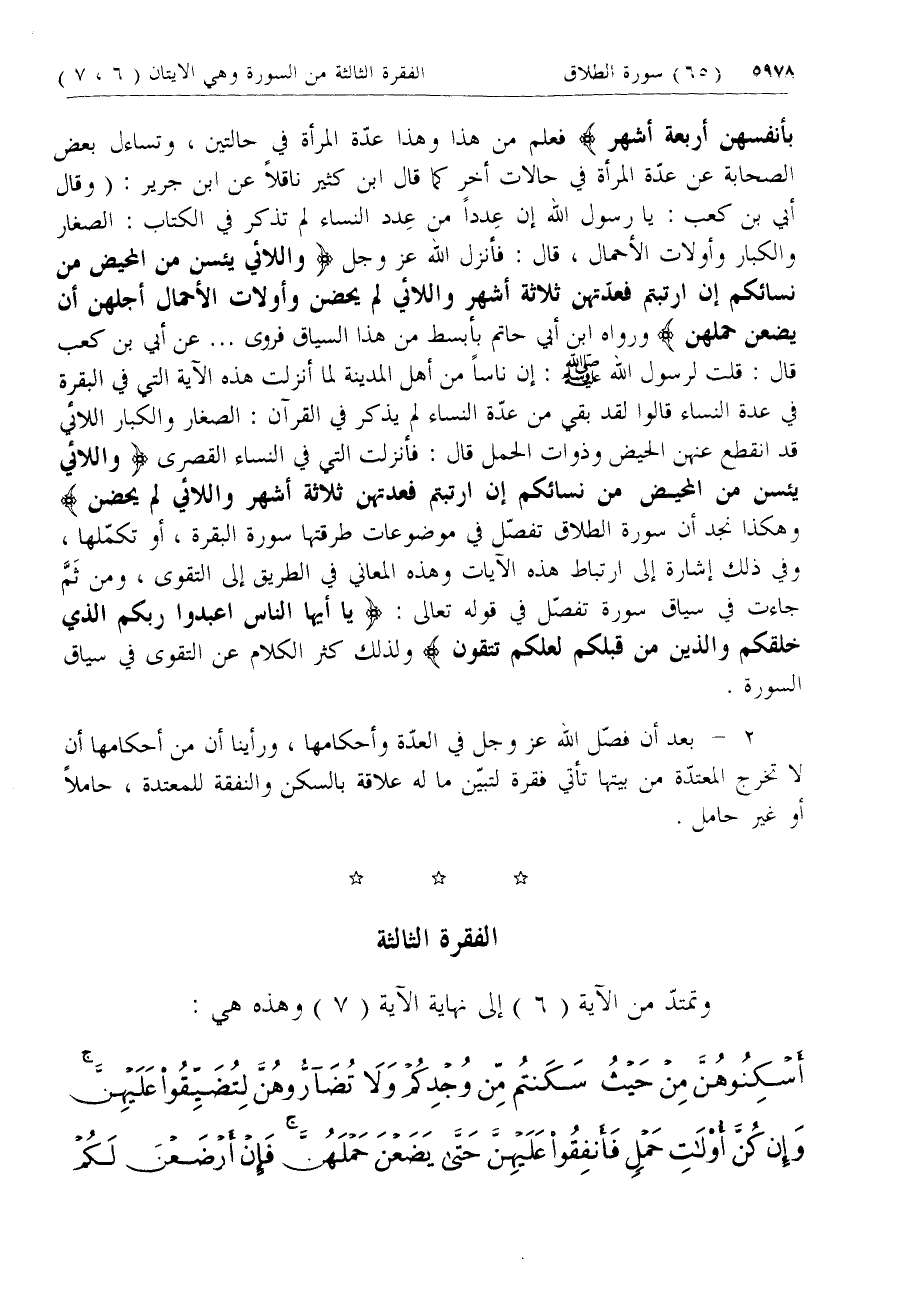 ٥٩٧٨ (٦٥) سورة الطلاق الفقرة الثالثة من السورة وهي الآيتان ( ٦ ، ٧ )
بأنفسهن أربعة أشهر ﴾ فعلم من هذا وهذا عدّة المرأة في حالتين ، وتساءل بعض
الصحابة عن عدّة المرأة في حالات أخر كما قال ابن كثير ناقلاً عن ابن جرير : ( وقال
أبي بن كعب : يا رسول الله إن عِدداً من عِدد النساء لم تذكر في الكتاب : الصغار
والكبار وأولات الأحمال ، قال : فأنزل الله عز وجل ﴿ واللائي يئسن من المحيض من
نسائكم إن ارتبتم فعدّتهن ثلاثة أشهر واللائي لم يحضن وأولات الأحمال أجلهن أن
يضعن حملهن ﴾ ورواه ابن أبي حاتم بأبسط من هذا السياق فروى ... عن أبي بن كعب
قال : قلت لرسول الله ﷺ : إن ناساً من أهل المدينة لما أنزلت هذه الآية التي في البقرة
في عدة النساء قالوا لقد بقي من عدّة النساء لم يذكر في القرآن : الصغار والكبار اللائي
قد انقطع عنهن الحيض وذوات الحمل قال : فأنزلت التي في النساء القصرى ﴿ واللائي
يئسن من المحيض من نسائكم إن ارتبتم فعدتهن ثلاثة أشهر واللائي لم يحضن ﴾
وهكذا نجد أن سورة الطلاق تفصّل في موضوعات طرقتها سورة البقرة ، أو تكمّلها ،
وفي ذلك إشارة إلى ارتباط هذه الآيات وهذه المعاني في الطريق إلى التقوى ، ومن ثَمَّ
جاءت في سياق سورة تفصّل في قوله تعالى : ﴿ يا أيها الناس اعبدوا ربكم الذي
خلقكم والذين من قبلكم لعلكم تتقون ﴾ ولذلك كثر الكلام عن التقوى في سياق
السورة .
٢ – بعد أن فصّل الله عز وجل في العدّة وأحكامها ، ورأينا أن من أحكامها أن
لا تخرج المعتدّة من بيتها تأتي فقرة لتبيّن ما له علاقة بالسكن والنفقة للمعتدة ، حاملاً
أو غير حامل .
☆ ☆ ☆
الفقرة الثالثة
وتمتدّ من الآية ( ٦ ) إلى نهاية الآية ( ٧ ) وهذه هي :
أَسْكِنُوهُنَّ مِنْ حَيْثُ سَكَنتُم مِّن وُجْدِكُمْ وَلَا تُضَآرُّوهُنَّ لِتُضَيِّقُواْ عَلَيْهِنَّۚ
وَإِن كُنَّ أُوْلَٰتِ حَمْلٍ فَأَنفِقُواْ عَلَيْهِنَّ حَتَّىٰ يَضَعْنَ حَمْلَهُنَّۚ فَإِنْ أَرْضَعْنَ لَكُمْ